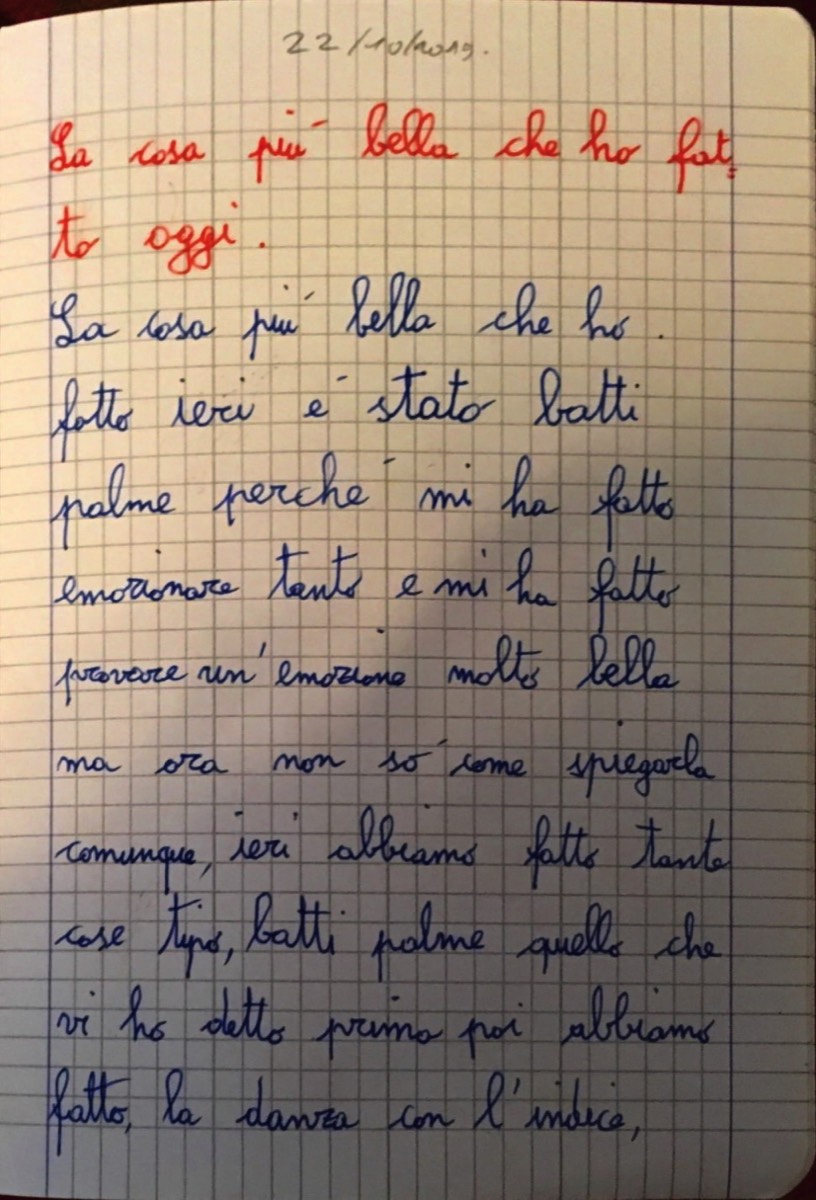 22/10/2019.
La cosa più bella che ho fat=
to oggi.
La cosa più bella che ho.
fatto ieri é stato batti
palme perché mi ha fatto
emozionare tanto e mi ha fatto
provare un'emozione molto bella
ma ora non só come spiegarla
comunque, ieri abbiamo fatto tante
cose tipo, batti palme quello che
vi ho detto prima poi abbiamo
fatto, la danza con l'indice,